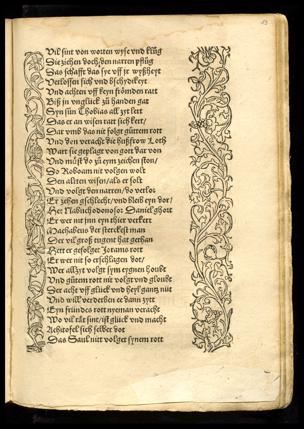 Vil sint von worten wyse vnd klůg
Die ziehen doch den narren pflůg
Das schafft das sye vff jr wyßheyt
Verlossen sich vnd bschydikeyt
Vnd achten vff keyn frömden ratt
Biß jn vnglück zů handen gat
Syn sůn Thobias all zyt lert
Das er an wisen ratt sich kert /
Dar vmb das nit folgt gůttem rott
Vnd den veracht die hußfrow Loth
Wart sie geplagt von gott dar von
Vnd můst do zů eym zeichen ston /
Do Roboam nit volgen wolt
Den alten wisen / als er solt
Vnd volgt den narren / do verlor
Er zehen gschlecht / vnd bleib eyn dor /
Het Nabuchodonosor Daniel ghört
Er wer nit jnn eyn thier verkert
Machabeus der sterckest man
Der vil groß tugent hat gethan
Hett er gefolget Jorams rott
Er wer nit so erschlagen dot /
Wer allzyt volgt sym eygnen houbt
Vnd gůtem rott nit volgt vnd gloubt
Der acht vff glück vnd heyl gantz nüt
Vnd will verderben ee dann zyt
Eyn fründes rott nyeman veracht
Wo vil rätt sint / ist glück vnd macht
Achitofel sich selber dot
Das Saul nitt volget synem rott